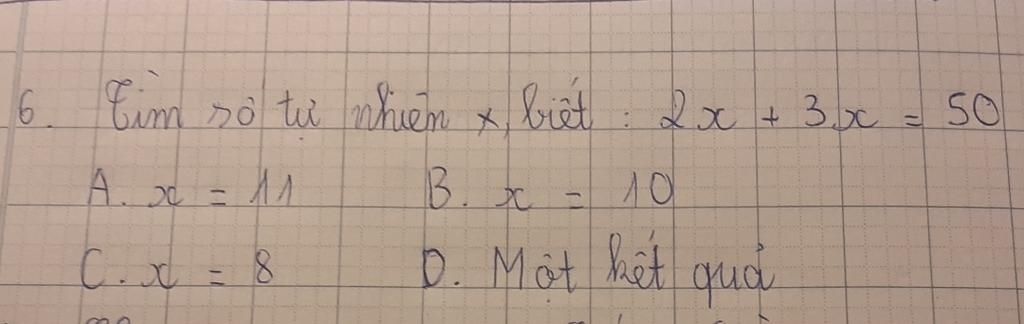 6. Tìm số tự nhiên x, biết : 2x + 3x = 50
A. x = 11 B. x = 10
C. x = 8 D. Một kết quả